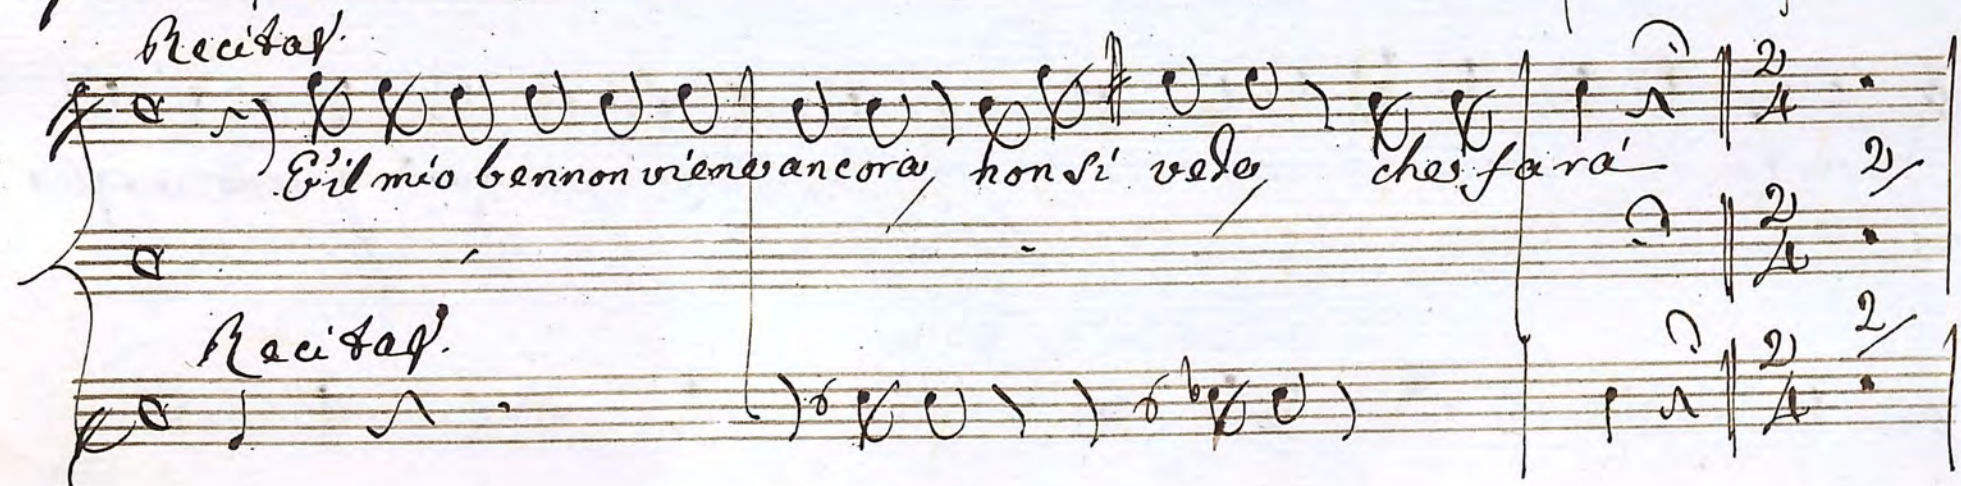 Recitat.
E il mio ben non viene ancora, non si vede, che farà
2
Recitat.
2